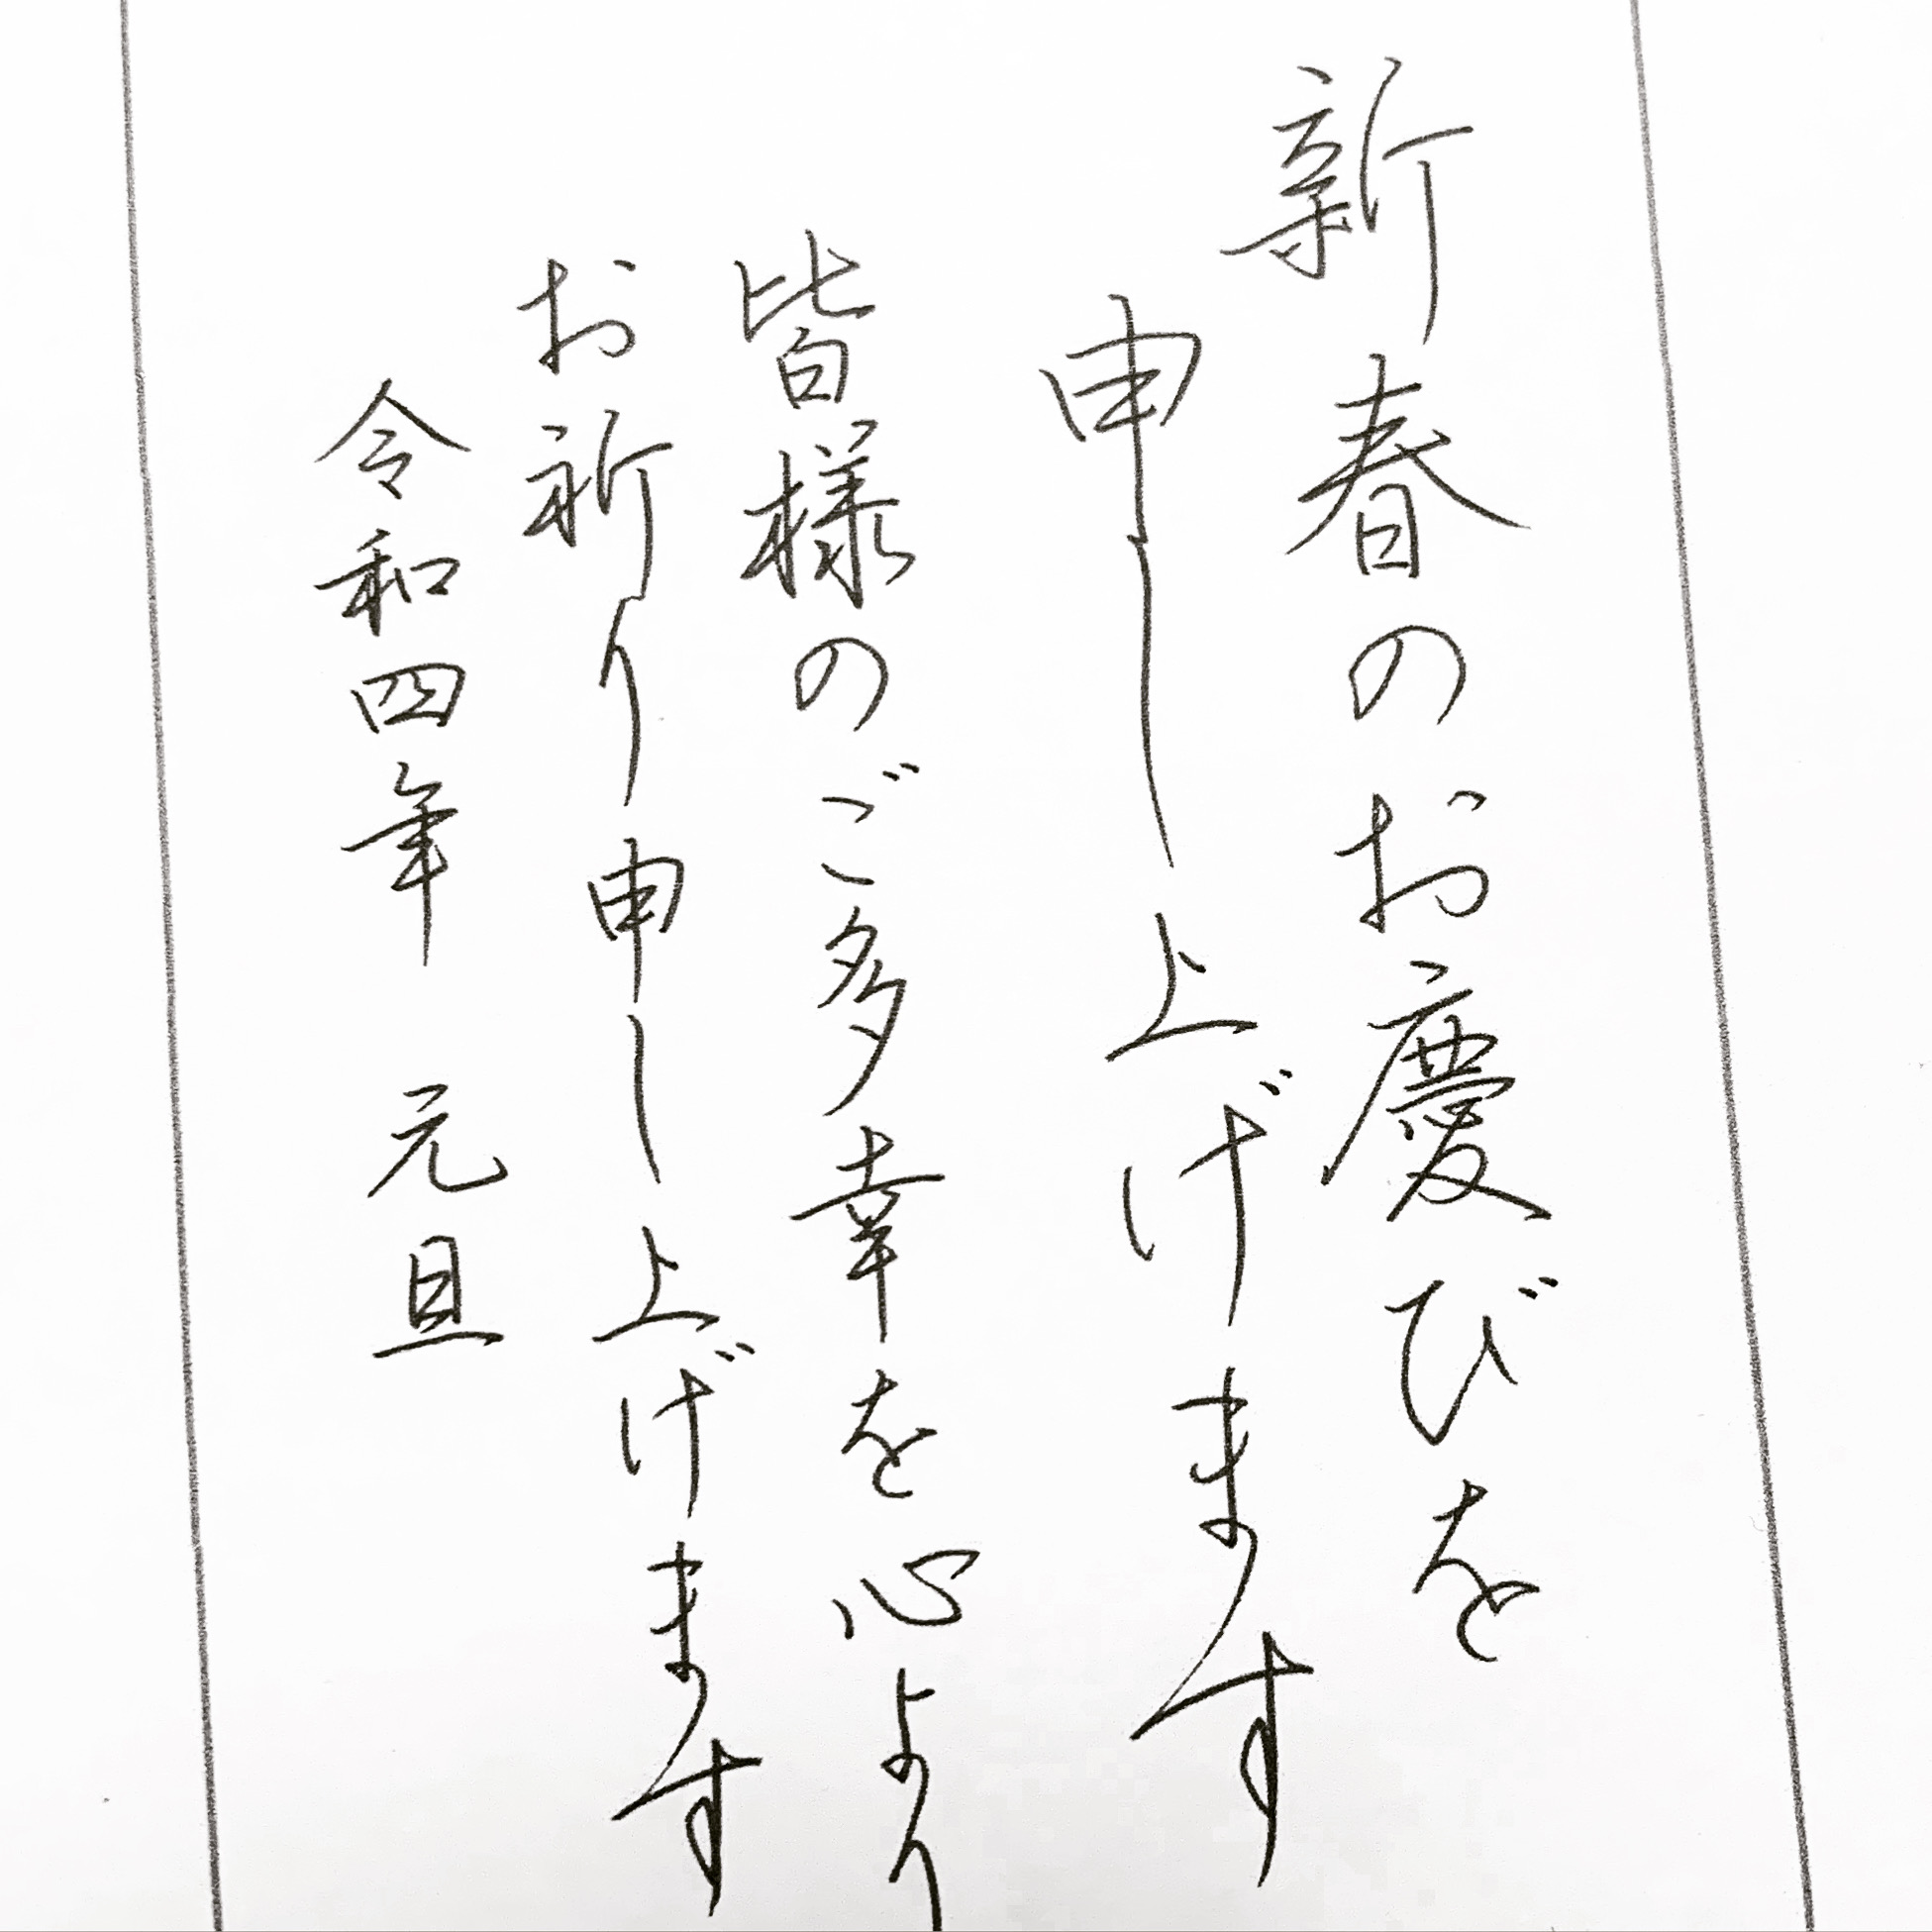 新春のお慶びを
申し上げます
皆様のご多幸を心より
お祈り申し上げます
令和四年　元旦